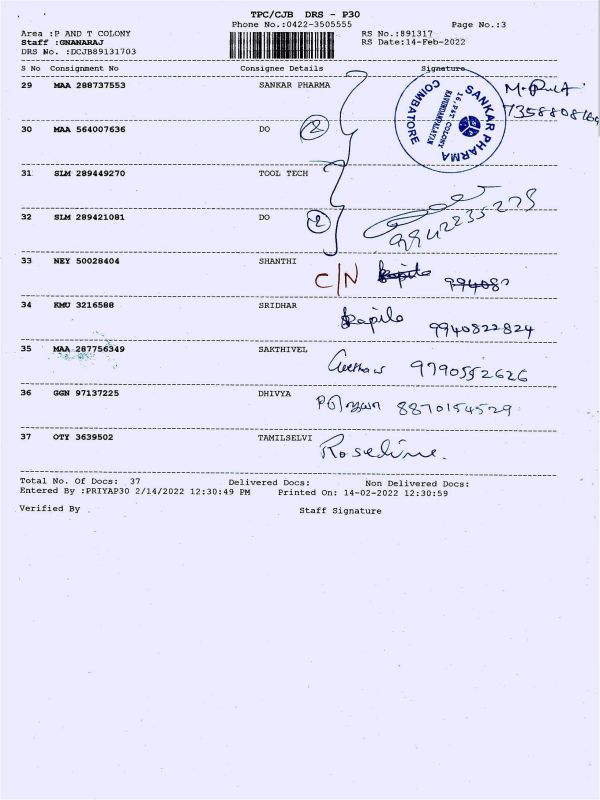 TPC/CJB DRS - P30
Phone No.:0422-3505555 Page No.:3
Area :P AND T COLONY RS No.:891317
Staff :GNANARAJ RS Date:14-Feb-2022
DRS No. :DCJB89131703
S No Consignment No Consignee Details Signature
29 MAA 288737553 SANKAR PHARMA
SANKAR PHARMA
COIMBATORE
7358808160
30 MAA 564007636 DO 2
31 SLM 289449270 TOOL TECH
32 SLM 289421081 DO 2
9942235273
33 NEY 50028404 SHANTHI C/N
34 KMU 3216588 SRIDHAR Kapila 9940822824
35 MAA 287756349 SAKTHIVEL 9790552626
36 GGN 97137225 DHIVYA 8870154529
37 OTY 3639502 TAMILSELVI Roseline.
Total No. Of Docs: 37 Delivered Docs: Non Delivered Docs:
Entered By :PRIYAP30 2/14/2022 12:30:49 PM Printed On: 14-02-2022 12:30:59
Verified By Staff Signature